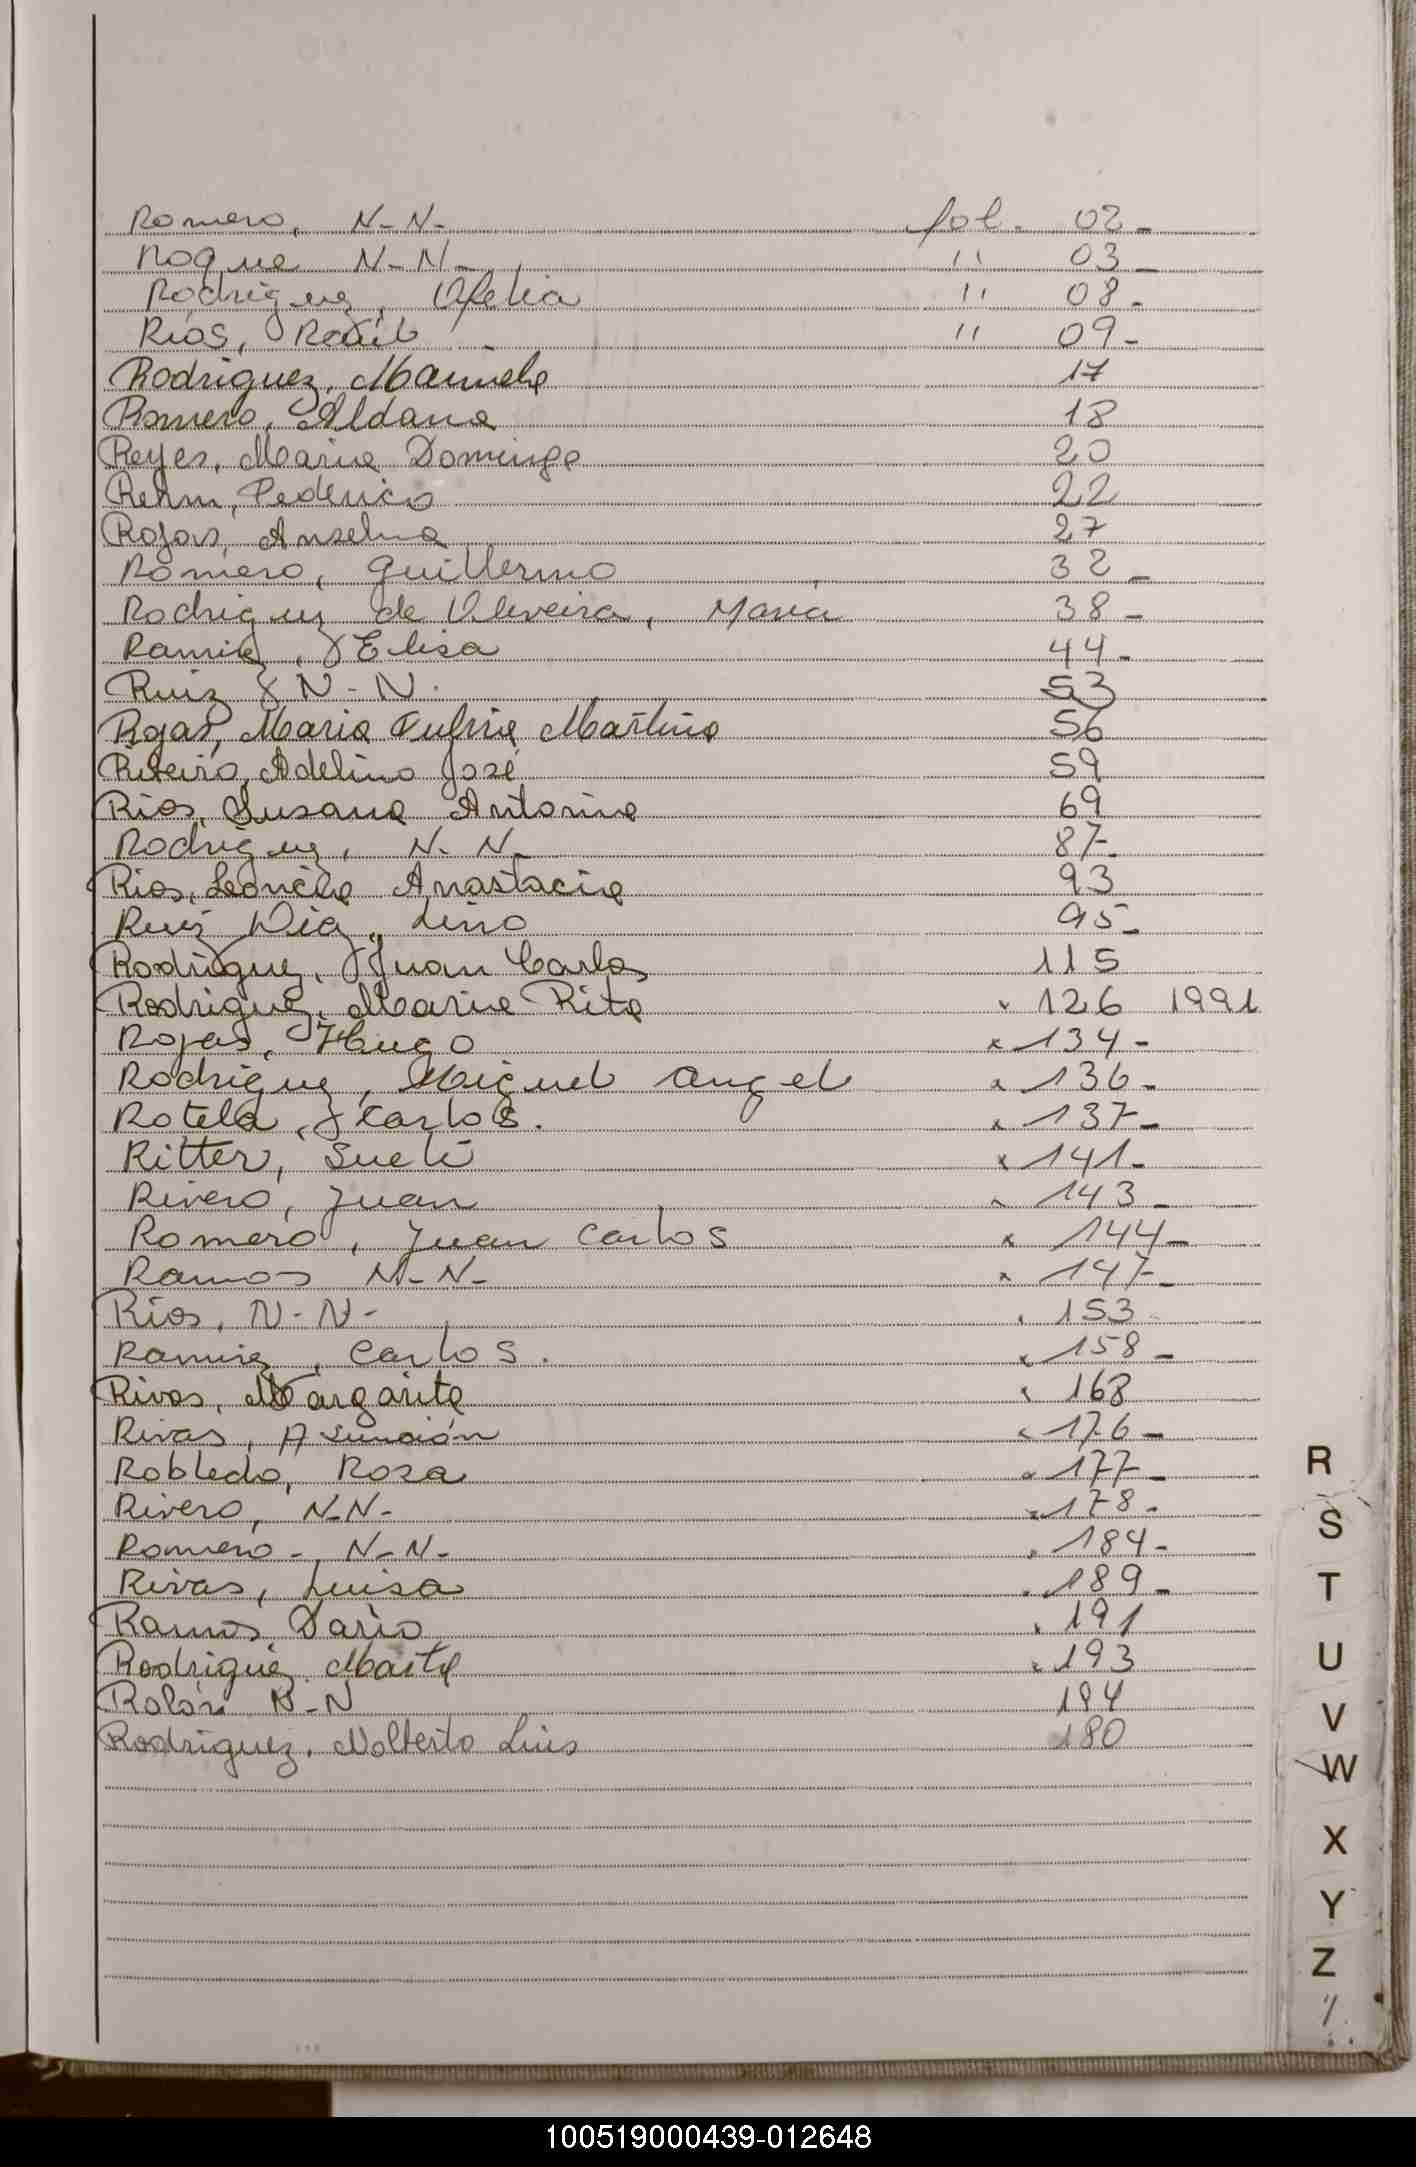 Romero, N-N- fol. 02-
Roque N-N- " 03-
Rodriguez, Ofelia " 08-
Rios, Raúl " 09-
Rodriguez, Marciela 17
Romero, Aldana 18
Reyes, Maria Dominga 20
Rehm, Federico 22
Rojas, Anselma 27
Romero, Guillermo 32-
Rodriguez de Oliveira, Maria 38-
Ramirez, Elisa 44-
Ruiz N-N. 53
Rojas, Maria Martina 56
Ribeiro, Adelino José 59
Rios, Susana Antonia 69
Rodriguez, N-N- 87-
Rios, Leoncia Anastacia 93
Ruiz Diaz, Lino 95-
Rodriguez, Juan Carlos 115
Rodriguez, Maria Rita " 126 1991
Rojas, Hugo " 134-
Rodriguez, Miguel Angel " 136-
Rotela, Carlos. " 137-
Ritter, Sueli " 141-
Rivero, Juan " 143-
Romero, Juan Carlos " 144-
Ramos N-N- " 147-
Rios, N-N- " 153
Ramirez, Carlos. " 158-
Rivas, Margarita " 168
Rivas, Asunción " 176-
Robledo, Rosa " 177-
Rivero, N-N- " 178-
Romero-, N-N- " 184-
Rivas, Luisa " 189-
Ramos, Dario " 191
Rodriguez, Marta " 193
Rolón N-N 194
Rodriguez, Nolberto Luis 180
R
S
T
U
V
W
X
Y
Z
100519000439-012648